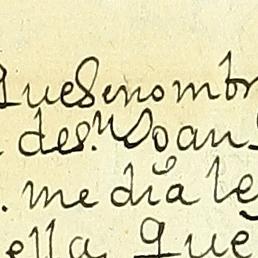 Que Se nombr
de S.ⁿ Joan
. me dia le
ella, Que